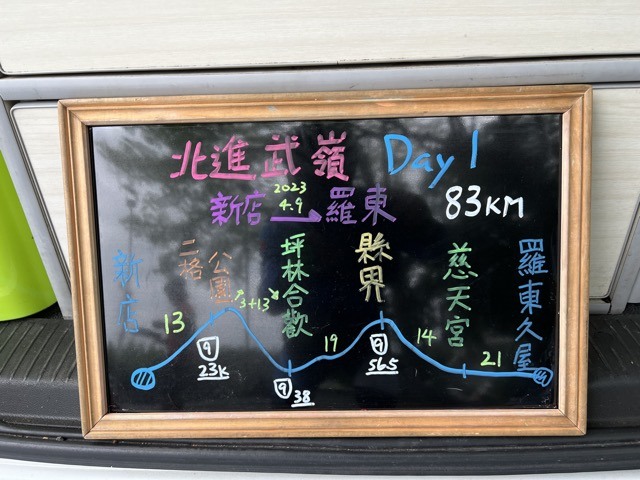 北進武嶺 Day 1
新店 → 羅東 83KM
2023
4.9
新店
二格
公園
坪林合歡
縣界
慈天宮
羅東久屋
13
3+13
19
14
21
9
23K
9
38
9
56.5